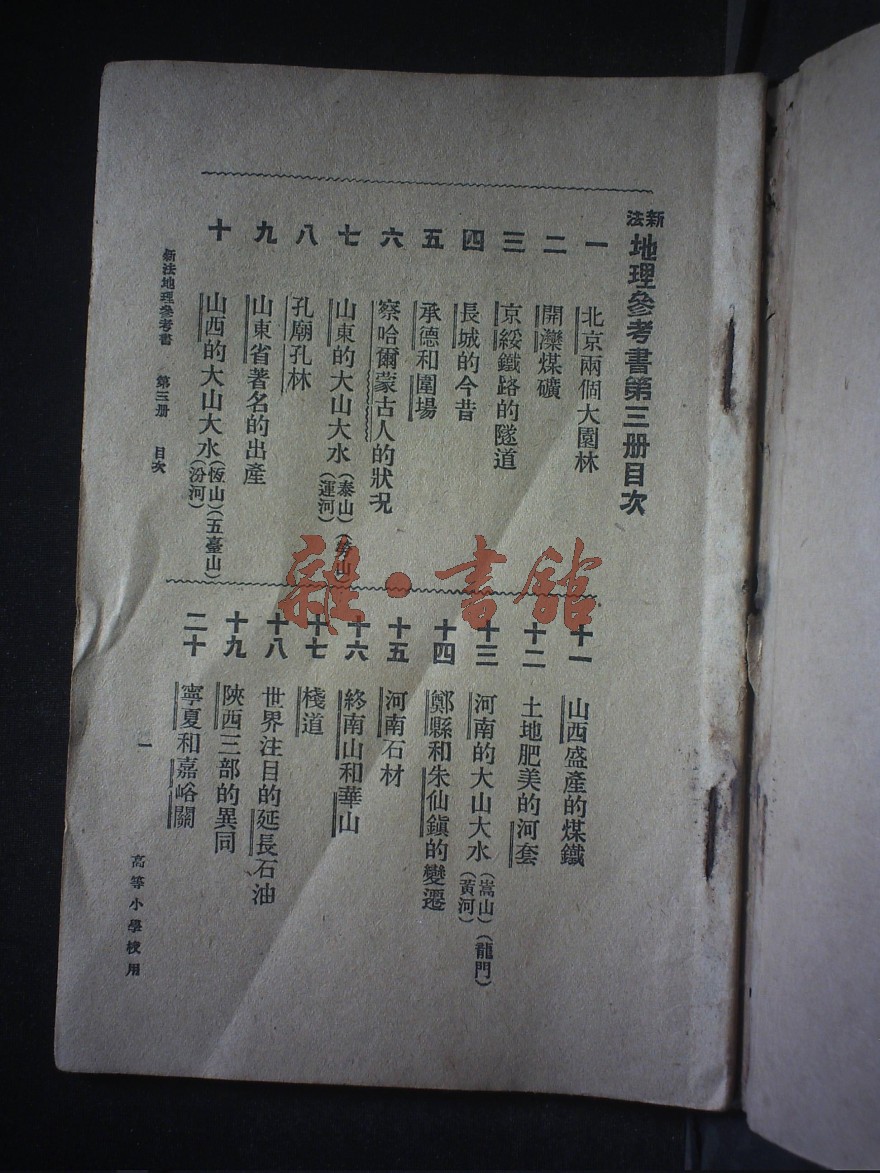 新法地理參考書第三册目次
一 北京兩個大園林
二 開灤煤礦
三 京綏鐵路的隧道
四 長城的今昔
五 承德和圍場
六 察哈爾蒙古人的狀况
七 山東的大山大水(泰山)(勞山)(運河)
八 孔廟孔林
九 山東省著名的出產
十 山西的大山大水(恆山)(五臺山)(汾河)
十一 山西盛產的煤鐵
十二 土地肥美的河套
十三 河南的大山大水(嵩山)(龍門)(黃河)
十四 鄭縣和朱仙鎭的變遷
十五 河南石材
十六 終南山和華山
十七 棧道
十八 世界注目的延長石油
十九 陝西三部的異同
二十 寧夏和嘉峪關
新法地理參考書 第三册 目次
一
高等小學校用
雜·書館